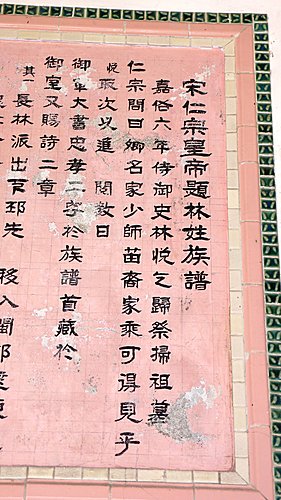 宋仁宗皇帝題林姓族譜
嘉佑六年侍御史林悅乞歸祭掃祖墓
仁宗問曰卿名家少師苗裔家乘可得見乎
悅取次以進 閱數日
御筆大書忠孝二字於族譜首藏於
御室又賜詩二章
其一 長林派出下邳先
移入閩邦